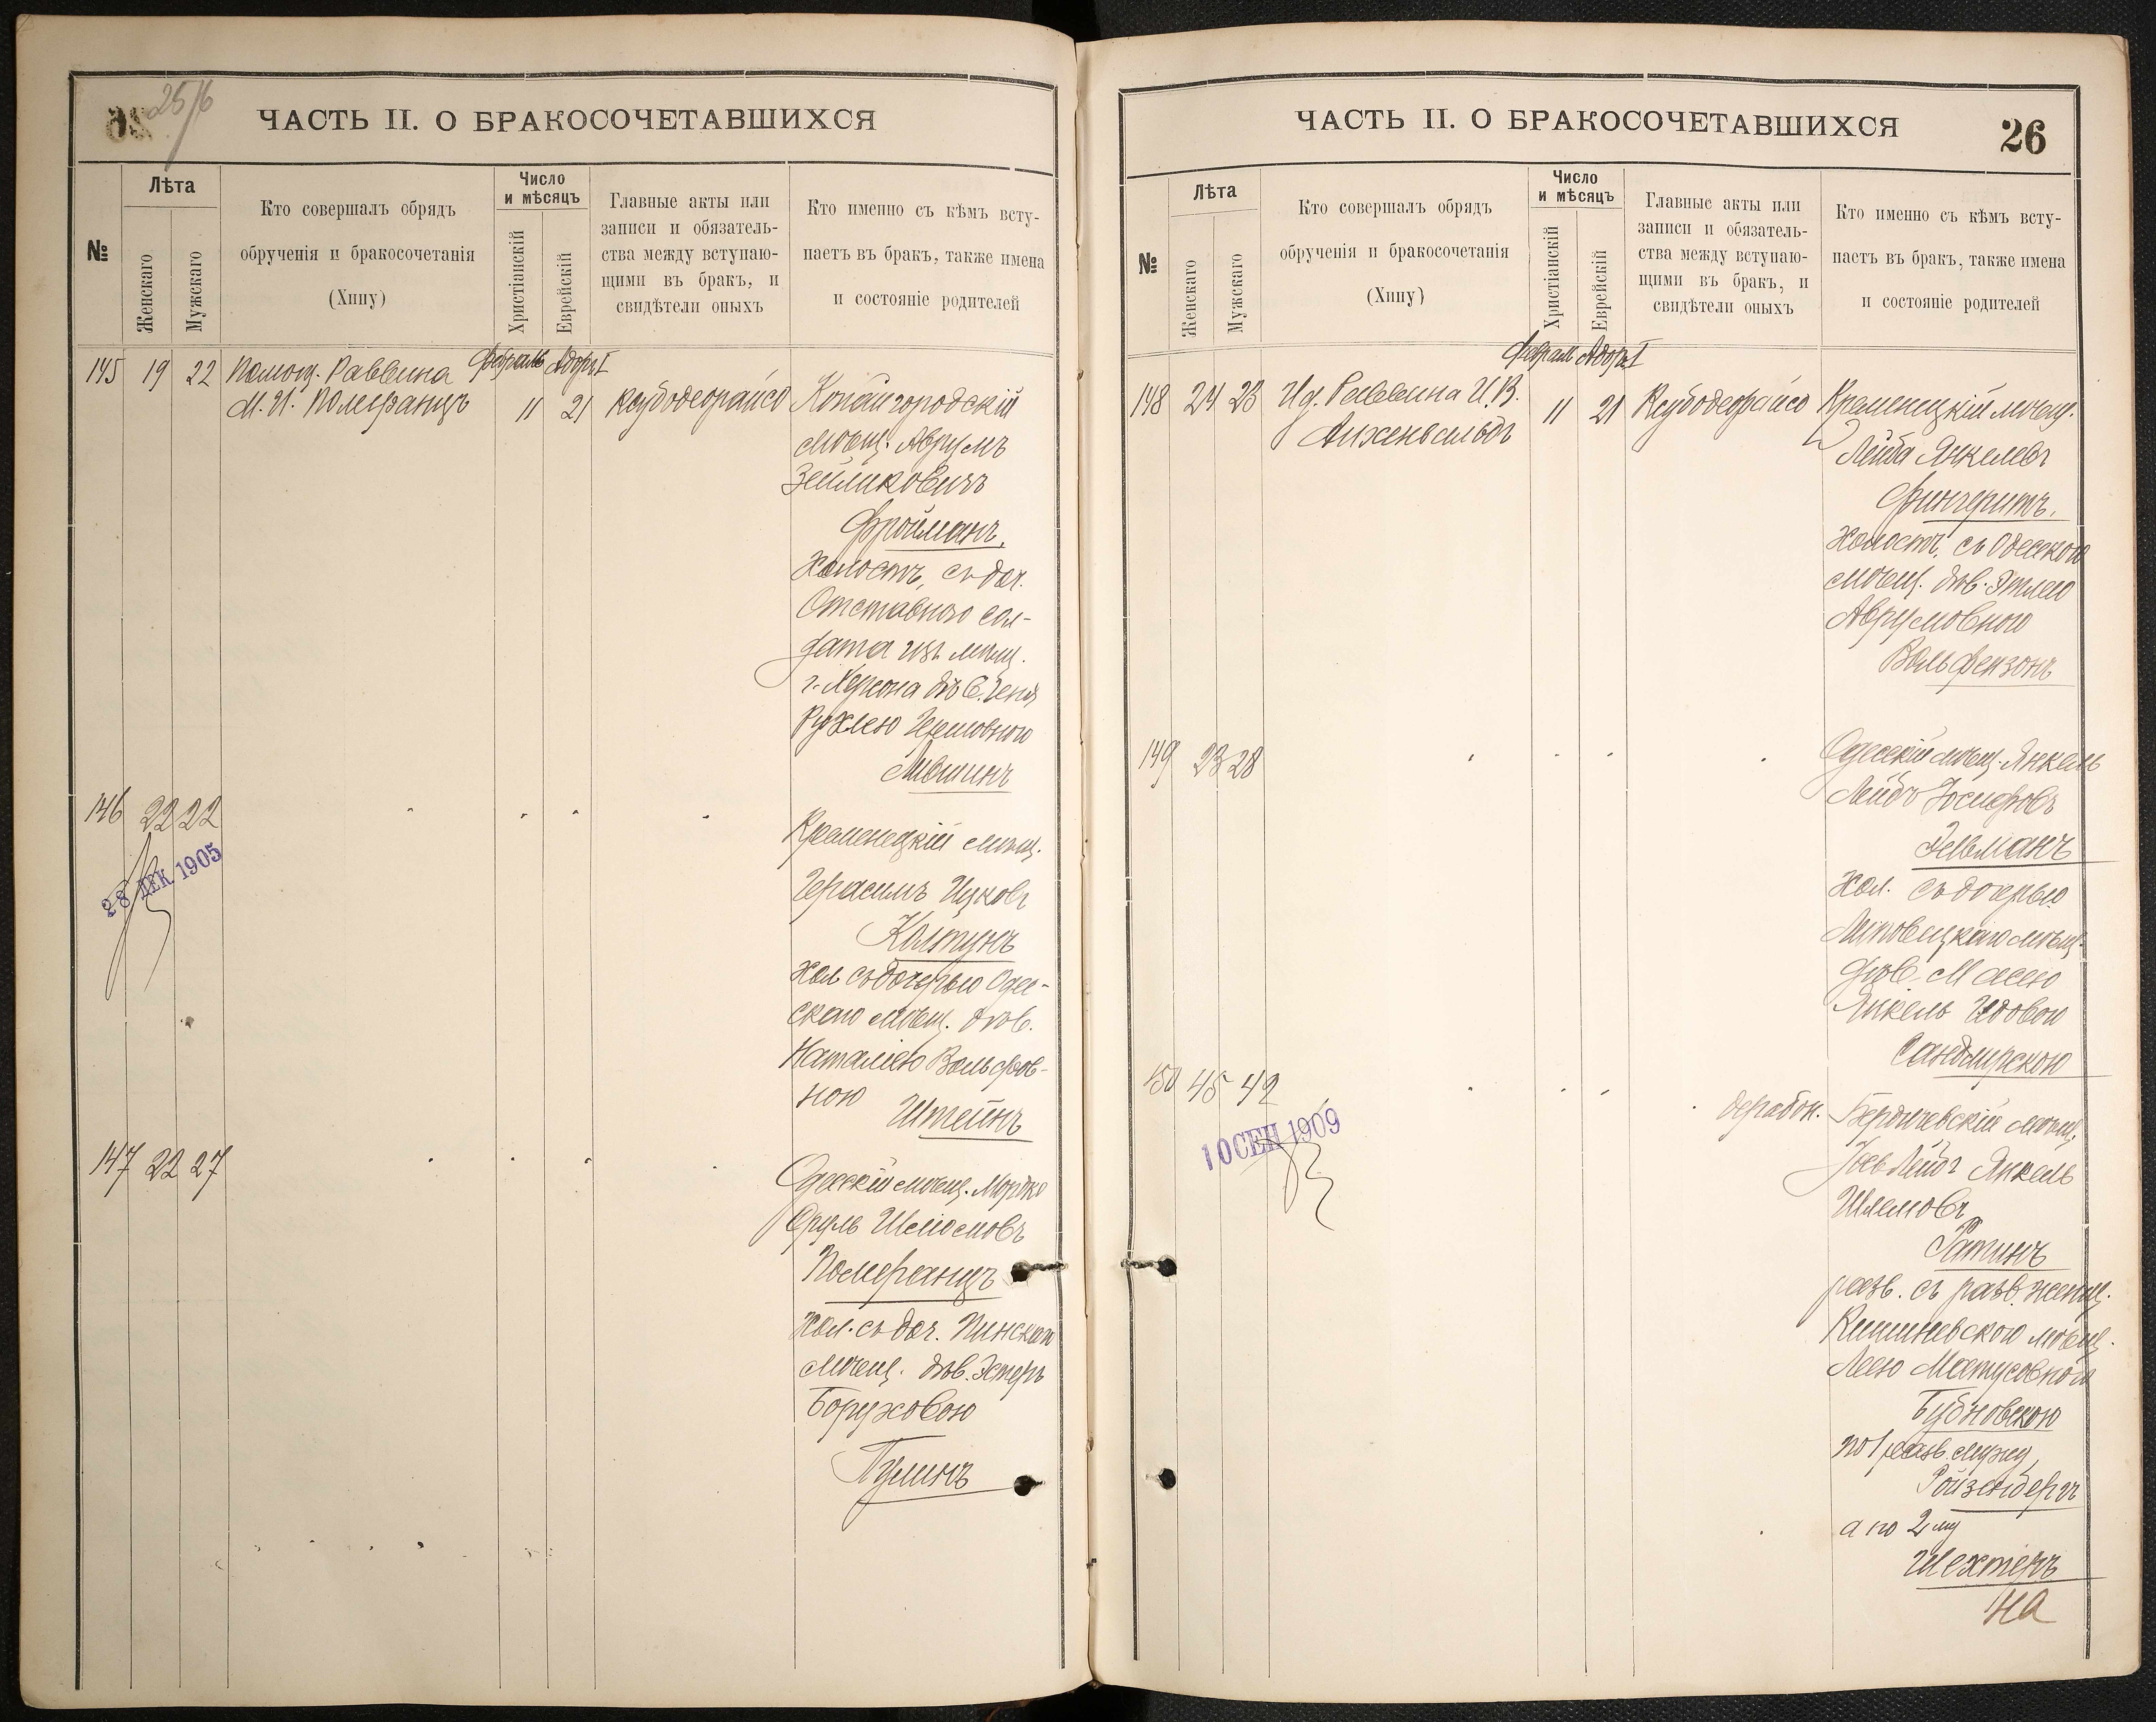 25/6
ЧАСТЬ II. О БРАКОСОЧЕТАВШИХСЯ
№
Лѣта
Женскаго
Мужскаго
Кто совершалъ обрядъ
обрученія и бракосочетанія
(Хипу)
Число
и мѣсяцъ
Христіанскій
Еврейскій
Главные акты или
записи и обязатель-
ства между вступаю-
щими въ бракъ, и
свидѣтели оныхъ
Кто именно съ кѣмъ всту-
паетъ въ бракъ, также имена
и состояніе родителей
145 19 22 Помощ. Раввина
М. И. Померанцъ
Февраль Адоръ I
11 21 Ксубодеорайсо
Копайгородскій
мѣщ. Аврумъ
Зейликовичъ
Фройманъ,
Холостъ, съ доч.
Отставного сол-
дата изъ мѣщ.
г. Херсона дѣв. Геня
Рухлею Гершовною
Лившинъ
146 22 22
28 ДЕК 1905
Кременецкій мѣщ.
Герасимъ Ицковъ
Колтунъ
Хол съ дочерью Одес-
скаго мѣщ. дѣв.
Наталіею Вольфов-
ною
Штейнъ
147 22 27
Одесскій мѣщ. Мордко
Сруль Шліомовъ
Померанцъ
Хол. съ доч. Пинскаго
мѣщ. дѣв. Эстеръ
Боруховою
Пулинъ
ЧАСТЬ II. О БРАКОСОЧЕТАВШИХСЯ
26
№
Лѣта
Женскаго
Мужскаго
Кто совершалъ обрядъ
обрученія и бракосочетанія
(Хипу)
Число
и мѣсяцъ
Христіанскій
Еврейскій
Главные акты или
записи и обязатель-
ства между вступаю-
щими въ бракъ, и
свидѣтели оныхъ
Кто именно съ кѣмъ всту-
паетъ въ бракъ, также имена
и состояніе родителей
148 24 23 И.д. Раввина И.В.
Анхенвальдъ
Февраль Адоръ I
11 21 Ксубодеорайсо
Кременецкій мѣщ.
Лейба Янкелевъ
Фингерить,
Холостъ, съ Одесскою
мѣщ. дѣв. Этлею
Аврумовною
Вольфензонъ
149 23 28
Одесскій мѣщ. Янкель
Лейбъ Іосифовъ
Гельманъ
Хол. съ дочерью
Липовецкаго мѣщ.
дѣв. Масею
Янкель Идовою
Сандмирскою
150 45 42
10 СЕН 1909
дерабон.
Бердичевскій мѣщ.
Іось Лейбъ Янкель
Шлемовъ
Ратинъ
разв. съ разв. женщ.
Кишиневскою мѣщ.
Леею Матусовною
Бубновскою
по 1 разв. мужу
Ройзенбергъ
а по 2му
Шехтеръ
на